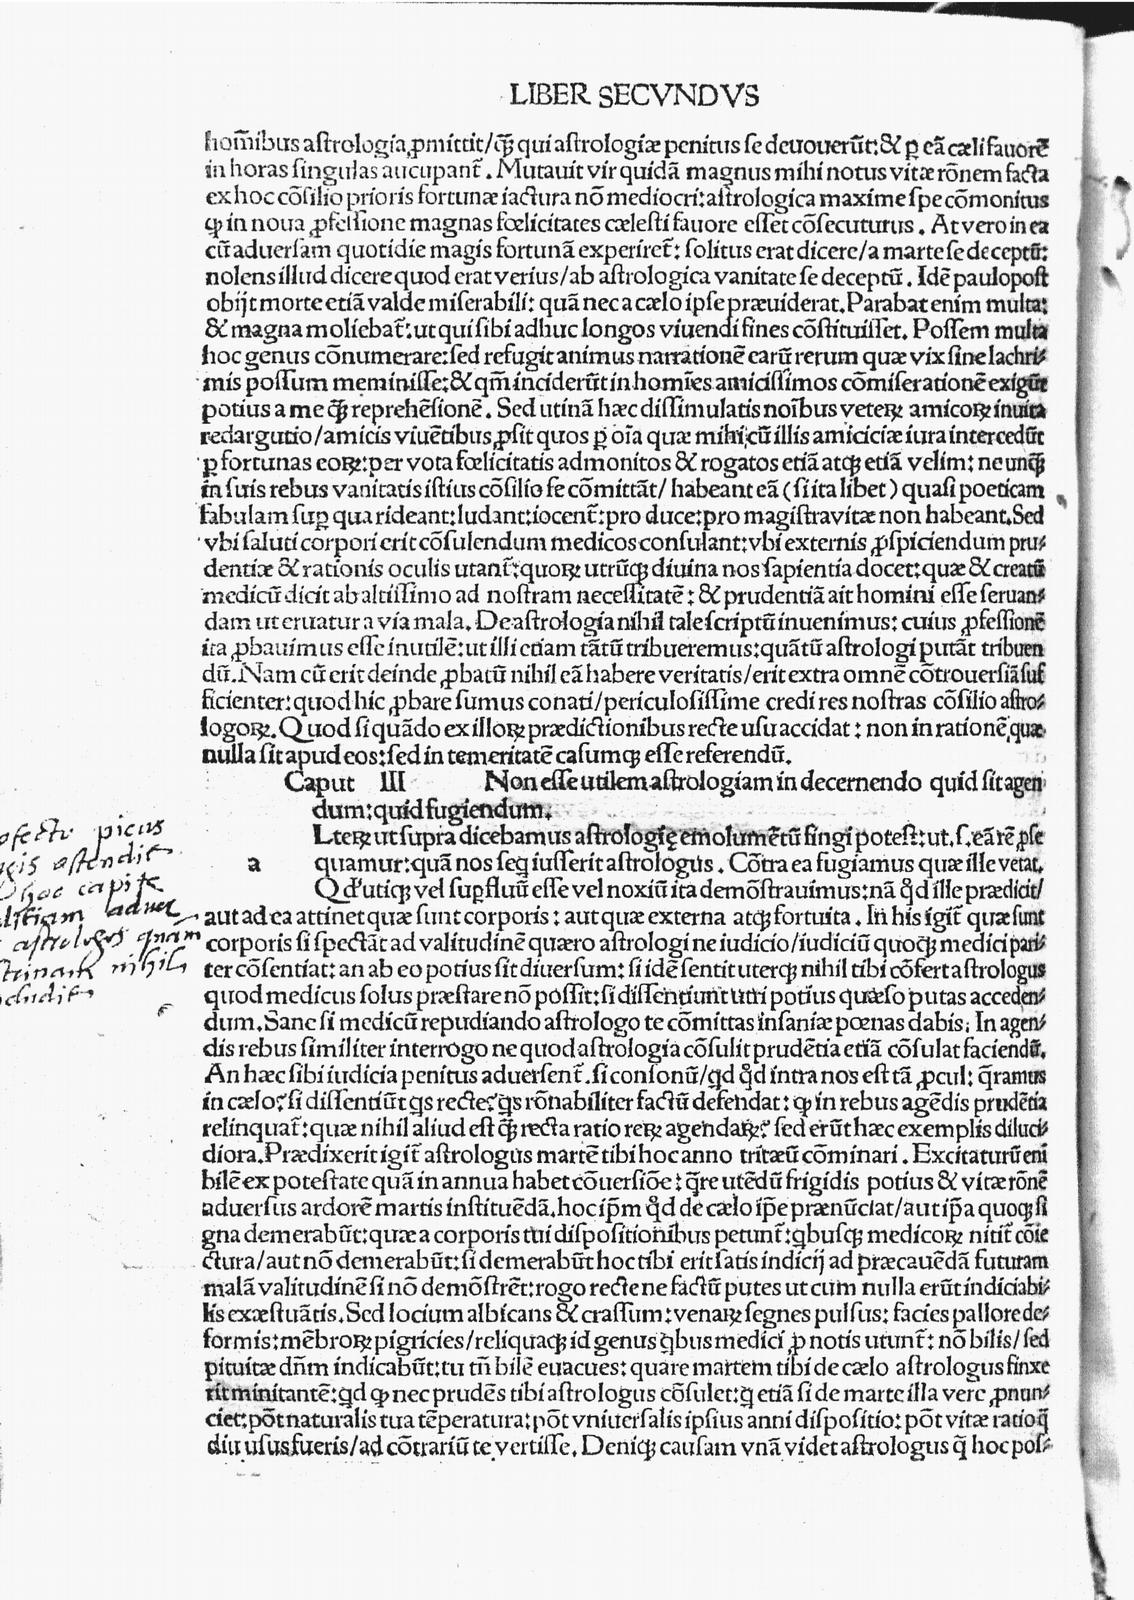 LIBER SECVNDVS
hom̃ibus astrologia ꝓmittit/q̃ꝫ qui astrologiæ penitus se deuouerũt:& ꝑ eã cæli fauorẽ
in horas singulas aucupant̃. Mutauit vir quidã magnus mihi notus vitæ rõnem facta
ex hoc cõsilio prioris fortunæ iactura nõ mediocri: astrologica maxime spe cõmonitus
ꝙ in noua ꝓfessione magnas fœlicitates cælesti fauore esset cõsecuturus. At vero in ea
cũ aduersam quotidie magis fortunã experiret̃: solitus erat dicere/a marte se deceptũ:
nolens illud dicere quod erat verius/ab astrologica vanitate se deceptũ. Idẽ paulopost
obijt morte etiã valde miserabili: quã nec a cælo ipse præuiderat. Parabat enim multa:
& magna moliebat̃: ut qui sibi adhuc longos viuendi fines cõstituisset. Possem multa
hoc genus cõnumerare: sed refugit animus narrationẽ earũ rerum quæ vix sine lachri⸗
mis possum meminisse:& qm̃ inciderũt in homĩes amicissimos cõmiserationẽ exigũt
potius a me q̃ꝫ reprehẽsionẽ. Sed utinã hæc dissimulatis noĩbus veteꝝ amicoꝝ inuita
redargutio/amicis viuẽtibus ꝓsit quos ꝑ oĩa quæ mihi cũ illis amiciciæ iura intercedũt
ꝑ fortunas eoꝝ: per vota fœlicitatis admonitos & rogatos etiã atqꝫ etiã velim: ne unq̃ꝫ
in suis rebus vanitatis istius cõsilio se cõmittãt/ habeant eã (si ita libet) quasi poeticam
fabulam suꝑ qua rideant: ludant: iocent̃: pro duce: pro magistra vitæ non habeant. Sed
vbi saluti corpori erit cõsulendum medicos consulant: vbi externis ꝓspiciendum pru⸗
dentiæ & rationis oculis utant̃: quoꝝ utrũqꝫ diuina nos sapientia docet: quæ & creatũ
medicũ dicit ab altissimo ad nostram necessitatẽ: & prudentiã ait homini esse seruan⸗
dam ut eruatur a via mala. De astrologia nihil tale scriptũ inuenimus: cuius ꝓfessionẽ
ita ꝓbauimus esse inutilẽ: ut illi etiam tãtũ tribueremus: quãtũ astrologi putãt tribuen
dũ. Nam cũ erit deinde ꝓbatũ nihil eã habere veritatis/erit extra omnẽ cõtrouersiã suf
ficienter: quod hic ꝓbare sumus conati/periculosissime credi res nostras cõsilio astro⸗
logoꝝ. Quod si quãdo ex illoꝝ prædictionibus recte usu accidat: non in rationẽ quæ
nulla sit apud eos: sed in temeritatẽ casumqꝫ esse referendũ.
Caput III Non esse utilem astrologiam in decernendo quid sit agen
dum: quid fugiendum.
Lteꝝ ut supra dicebamus astrologię emolumẽtũ fingi potest: ut .s. eã rẽ ꝓse
a quamur: quã nos seq̃ iusserit astrologus. Cõtra ea fugiamus quæ ille vetat.
Qđ utiqꝫ vel suꝑfluũ esse vel noxiũ ita demõstrauimus: nã q̊d ille prædicit/
aut ad ea attinet quæ sunt corporis: aut quæ externa atqꝫ fortuita. In his igit̃ quæ sunt
corporis si spectãt ad valitudinẽ quæro astrologi ne iudicio/iudiciũ quoqꝫ medici pari⸗
ter cõsentiat: an ab eo potius sit diuersum: si idẽ sentit uterqꝫ nihil tibi cõfert astrologus
quod medicus solus præstare nõ possit: si dissentiunt utri potius quæso putas acceden⸗
dum. Sane si medicũ repudiando astrologo te cõmittas insaniæ pœnas dabis. In agen⸗
dis rebus similiter interrogo ne quod astrologia cõsulit prudẽtia etiã cõsulat faciendũ.
An hæc sibi iudicia penitus aduersent̃. si consonũ/qd q̊d intra nos est tã ꝓcul: q̃ramus
in cælo? si dissentiũt q̃s recte? q̃s rõnabiliter factũ defendat: ꝙ in rebus agẽdis prudẽtia
relinquat̃: quæ nihil aliud est q̃ꝫ recta ratio reꝝ agendaꝝ? sed erũt hæc exemplis diluci⸗
diora. Prædixerit igit̃ astrologus martẽ tibi hoc anno tritæũ cõminari. Excitaturũ eni
bilẽ ex potestate quã in annua habet cõuersiõe: q̃re utẽdũ frigidis potius & vitæ rõnẽ
aduersus ardorẽ martis instituẽdã. hoc ip̃m q̊d de cælo ip̃e prænũciat/aut ip̃a quoqꝫ si
gna demerabũt: quæ a corporis tui dispositionibus petunt̃: q̃busqꝫ medicoꝝ nitit̃ cõie
ctura/aut nõ demerabũt: si demerabũt hoc tibi erit satis indicij ad præcauẽdã futuram
malã valitudinẽ si nõ demõstrẽt: rogo recte ne factũ putes ut cum nulla erũt indicia bi⸗
lis exæstuãtis. Sed locium albicans & crassum: venaꝝ segnes pulsus: facies pallore de⸗
formis: mẽbroꝝ pigricies/reliquaqꝫ id genus q̃bus medici ꝓ notis utunt̃: nõ bilis/sed
pituitæ dñm indicabũt: tu tñ bilẽ euacues: quare martem tibi de cælo astrologus finxe
rit minitantẽ: qd ꝙ nec prudẽs tibi astrologus cõsulet: q̃ etiã si de marte illa vere ꝓnun⸗
ciet: põt naturalis tua tẽperatura: põt vniuersalis ipsius anni dispositio: põt vitæ ratio q̃
diu usus fueris/ad cõtrariũ te vertisse. Deniqꝫ causam vnã videt astrologus q̃ hoc pos⸗
picus
ostendit
hoc capite
aduer
astrologos quam
nihil